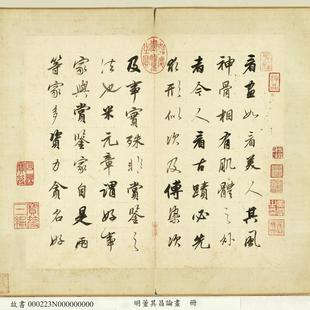 看畫如看美人其風
神骨相有肌體之外
者今人看古蹟必先
求形似次及傅染次
及事實殊非賞鑒之
法也米元章謂好事
家與賞鑒家自是兩
等家多資力貪名好
寶笈三編
故書 000223N000000000 明董其昌論畫 冊